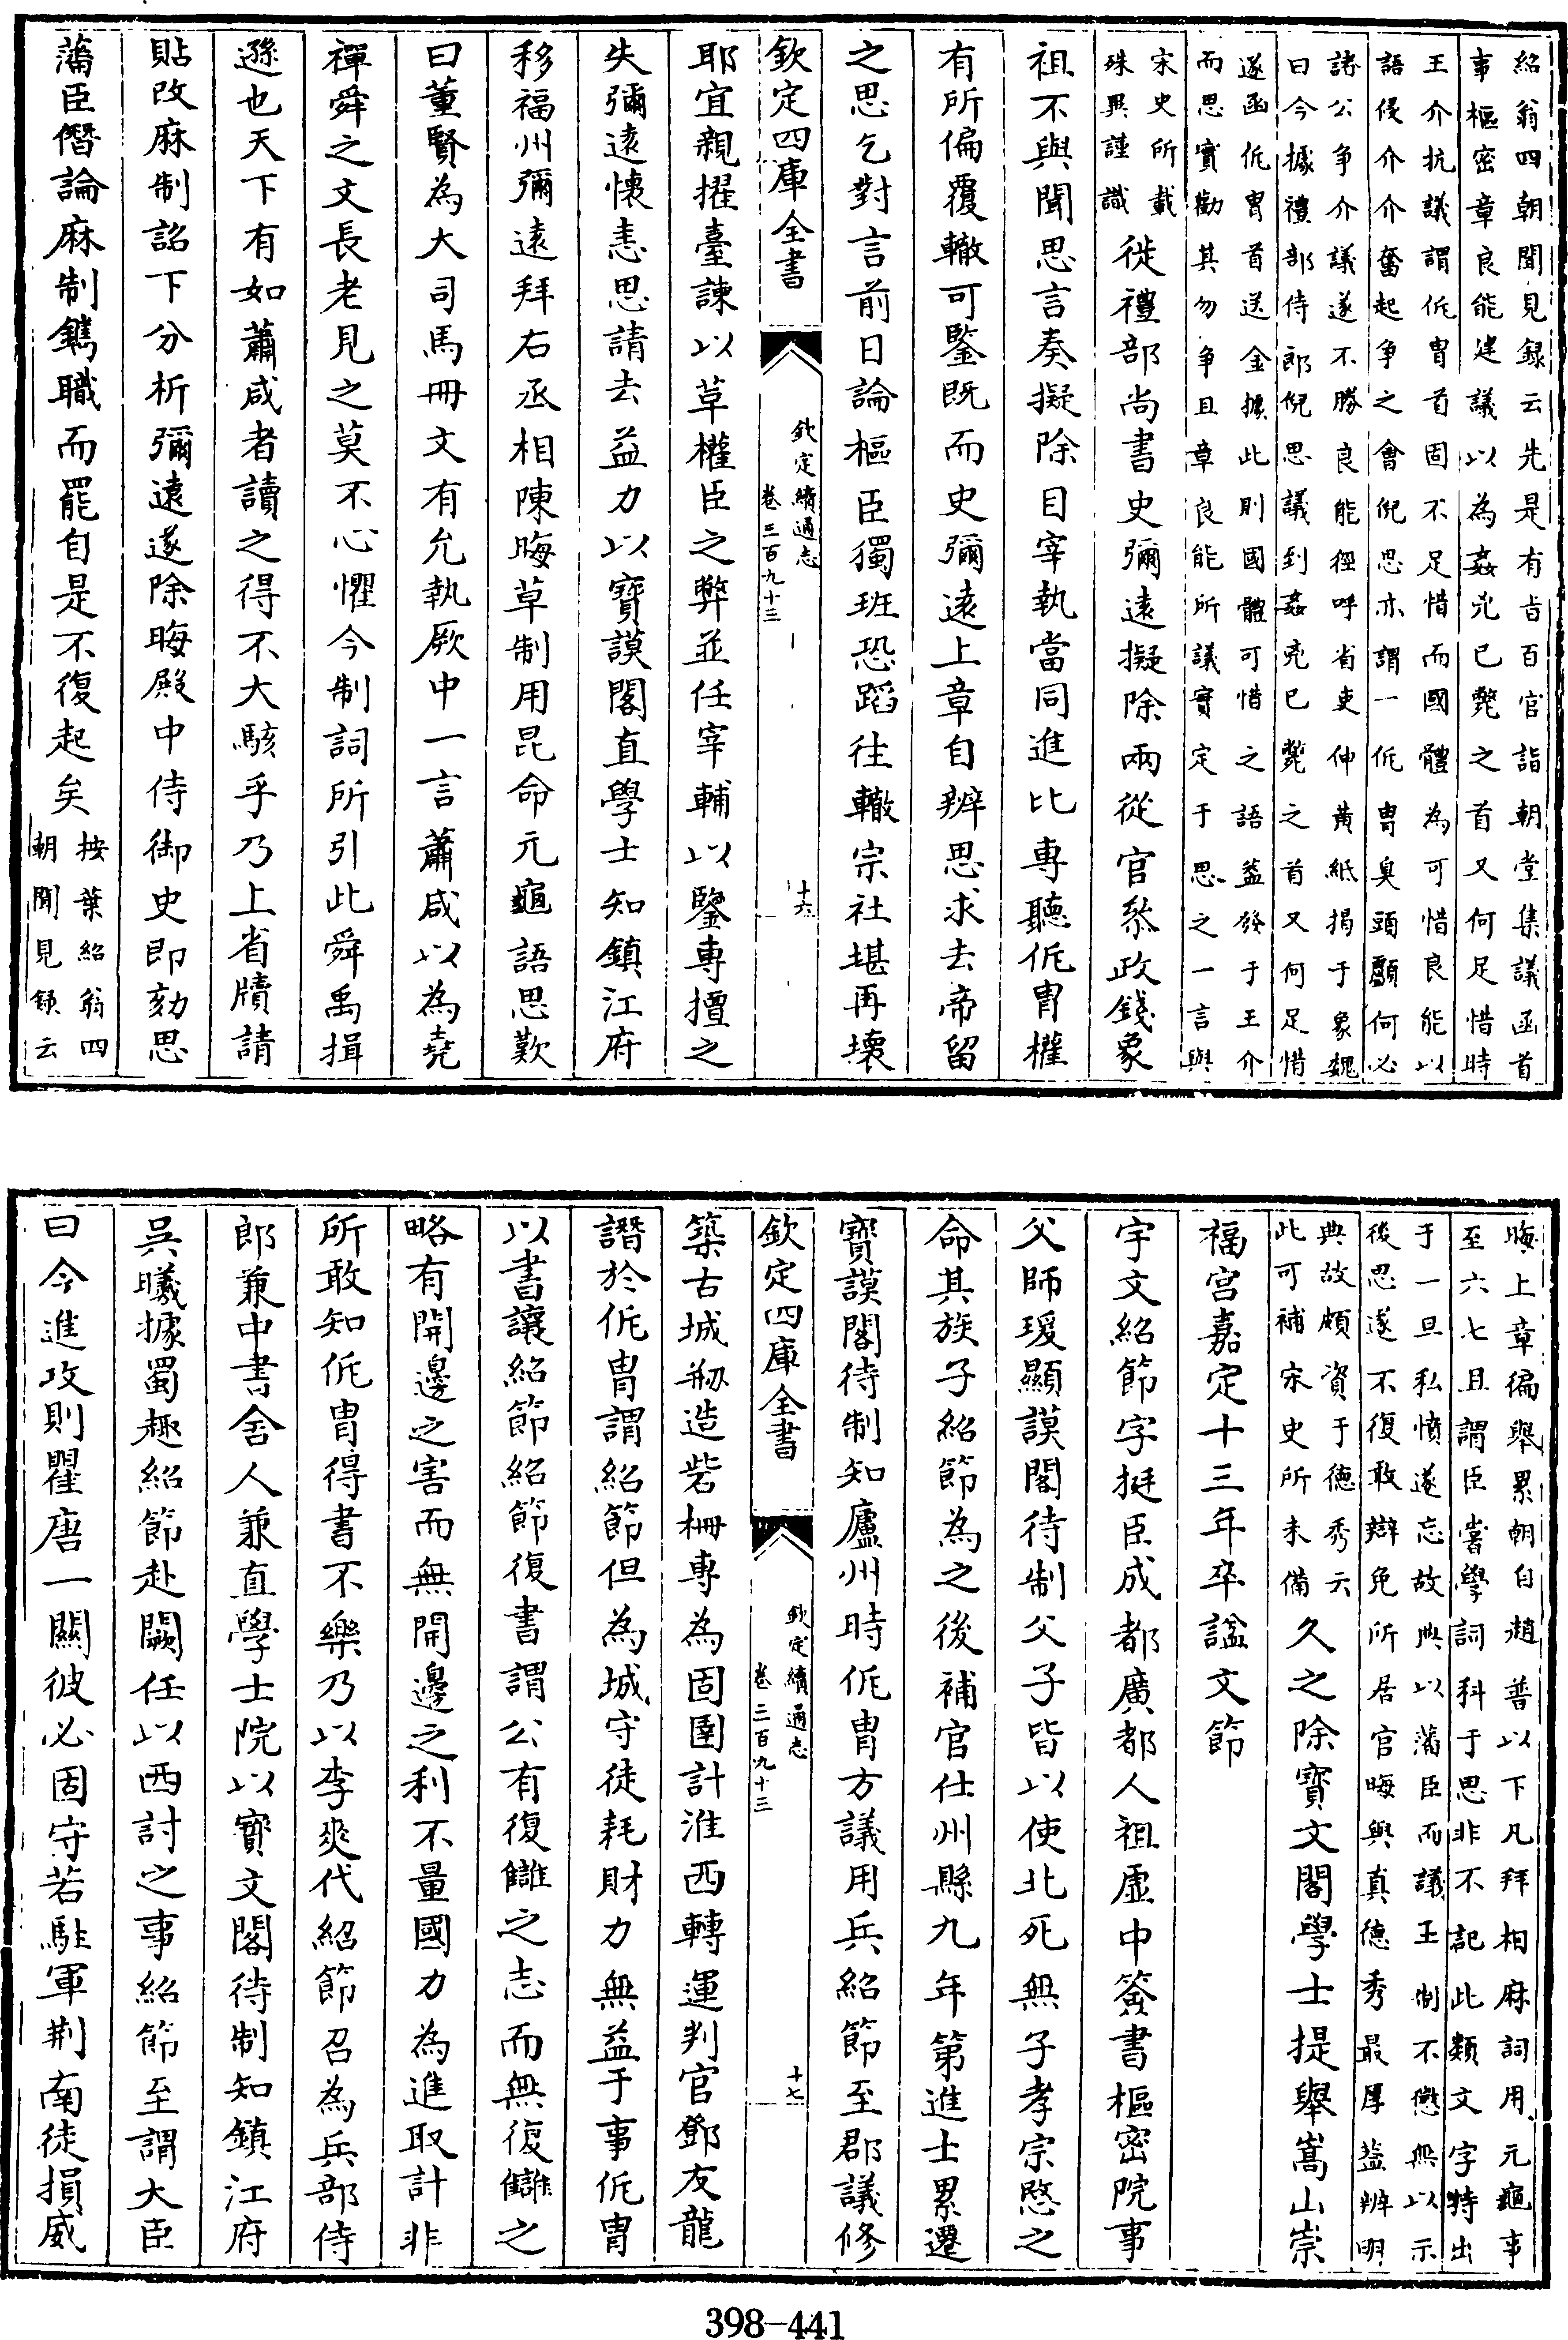 紹翁四朝聞見録云先是有㫖百官詣朝堂集議函首
事樞密章良能建議以為姦兇已斃之首又何足惜時
王介抗議謂侂胄首固不足惜而國體為可惜良能以
語侵介介奮起争之㑹倪思亦謂一侂胄臭頭顱何必
諸公争介議遂不勝良能徑呼省吏伸黄紙揭于象魏
曰今據禮部侍郎倪思議到姦兇已斃之首又何足惜
遂函侂胄首送金據此則國體可惜之語葢發于王介
而思實勸其勿争且章良能所議實定于思之一言與
宋史所載
殊異謹識
徙禮部尚書史彌遠擬除兩從官叅政錢象
祖不與聞思言奏擬除目宰執當同進比専聽侂胄權
有所偏覆轍可鑒既而史彌遠上章自辨思求去帝留
之思乞對言前日論樞臣獨班恐蹈往轍宗社堪再壊
欽定四庫全書
欽定續通志
卷三百九十三
十六
耶宜親擢臺諫以革權臣之弊並任宰輔以鑒専擅之
失彌遠懐恚思請去益力以寶謨閣直學士知鎮江府
移福州彌遠拜右丞相陳晦草制用昆命元龜語思歎
曰董賢為大司馬冊文有允執厥中一言蕭咸以為堯
禪舜之文長老見之莫不心懼今制詞所引此舜禹揖
遜也天下有如蕭咸者讀之得不大駭乎乃上省牘請
貼改麻制詔下分析彌遠遂除晦殿中侍御史即劾思
藩臣僭論麻制鐫職而罷自是不復起矣
按葉紹翁四
朝聞見録云
晦上章徧舉累朝自趙普以下凡拜相麻詞用元龜事
至六七且謂臣嘗學詞科于思非不記此類文字特出
于一旦私憤遂忘故典以藩臣而議王制不懲無以示
後思遂不復敢辯免所居官晦與真德秀最厚葢辨明
典故頗資于德秀云
此可補宋史所未備
久之除寶文閣學士提舉嵩山崇
福宫嘉定十三年卒諡文節
宇文紹節字挺臣成都廣都人祖虚中簽書樞密院事
父師瑗顯謨閣待制父子皆以使北死無子孝宗愍之
命其族子紹節為之後補官仕州縣九年第進士累遷
寶謨閣待制知廬州時侂胄方議用兵紹節至郡議修
欽定四庫全書
欽定續通志
卷三百九十三
十七
築古城剏造砦柵専為固圉計淮西轉運判官鄧友龍
譖於侂胄謂紹節但為城守徒耗財力無益于事侂胄
以書讓紹節紹節復書謂公有復讎之志而無復讎之
略有開邊之害而無開邊之利不量國力為進取計非
所敢知侂胄得書不樂乃以李爽代紹節召為兵部侍
郎兼中書舎人兼直學士院以寶文閣待制知鎮江府
吳曦據蜀趣紹節赴闕任以西討之事紹節至謂大臣
曰今進攻則瞿唐一關彼必固守若駐軍荆南徒損威
398-441